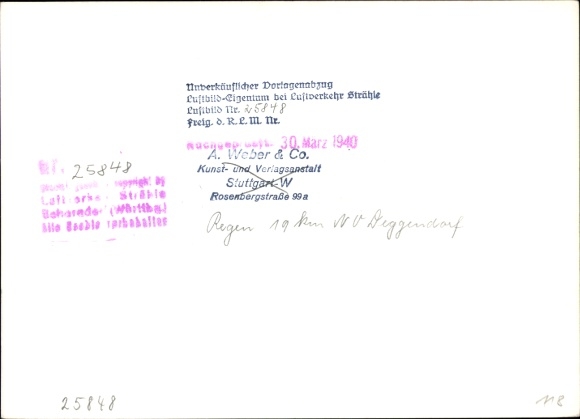 Unverkäuflicher Vorlagenabzug
Luftbild-Eigentum bei Luftverkehr Strähle
Luftbild Nr. 25848
Freig. d. R. L. M. Nr.
30. März 1940
A. Weber & Co.
Kunst- und Verlagsanstalt
Stuttgart-W
Rosenbergstraße 99a
Nr. 25848
copyright by
Strähle
Schorndorf (Württbg.)
Alle Rechte vorbehalten
Regen 19 km NO Deggendorf
25848